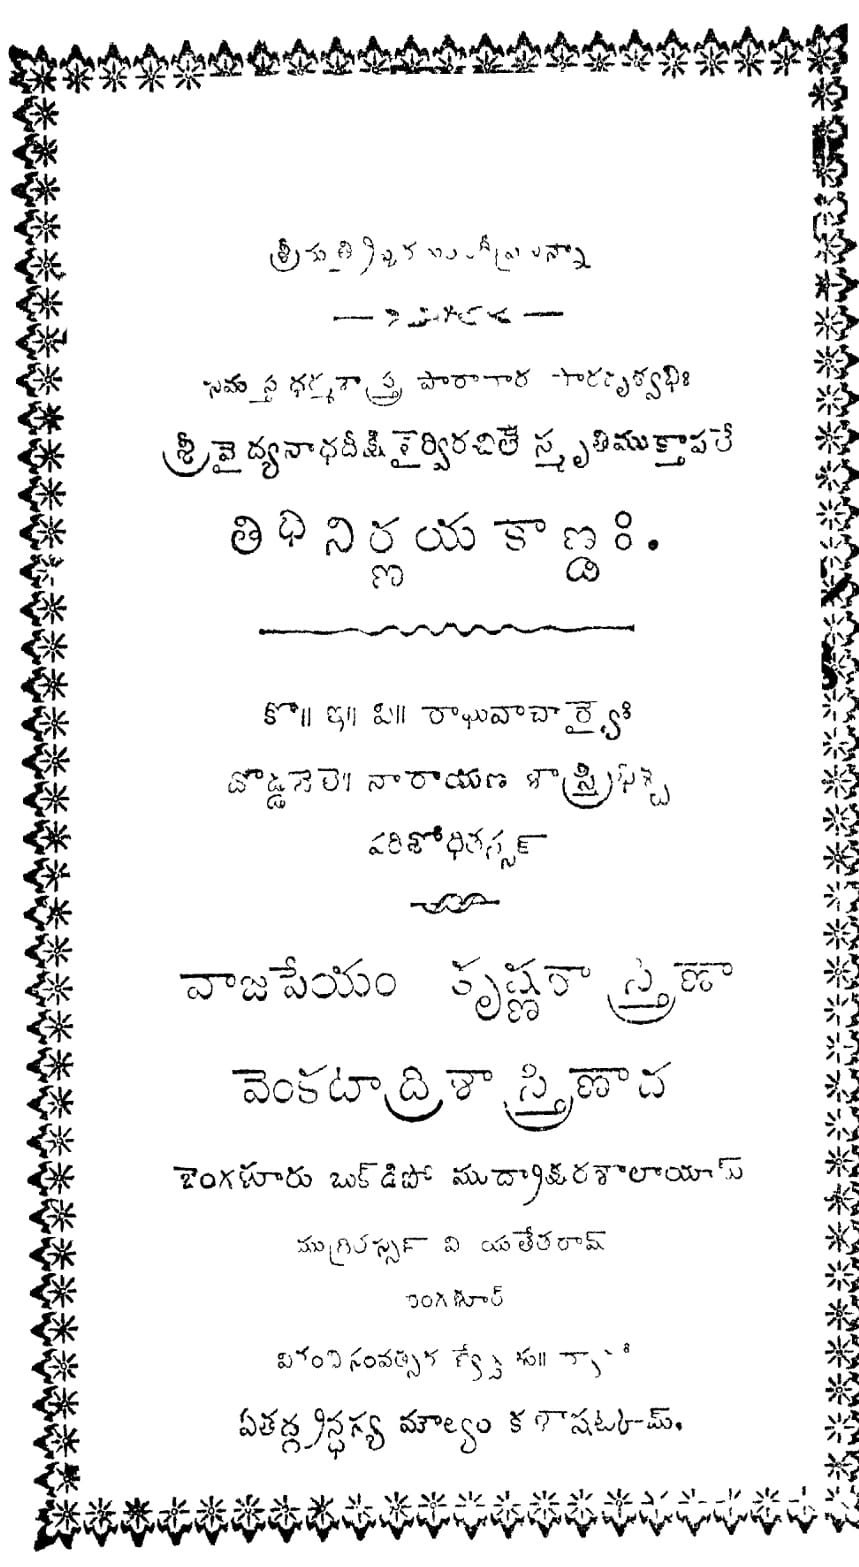 సమస్త ధర్మశాస్త్ర పారావార పారదృశ్వభిః
శ్రీ వైద్యనాధదీక్షితైర్విరచితే స్మృతిముక్తాఫలే
తిధినిర్ణయకాణ్డః.
కో॥ ఇ॥ పి॥ రాఘవాచార్యైః
దొడ్డబెలె॥ నారాయణ శాస్త్రిభిశ్చ
పరిశోధితస్సక్
వాజపేయం కృష్ణశాస్త్రిణా
వెంకటాద్రిశాస్త్రిణాచ
బెంగళూరు బుక్‌డిపో ముద్రాక్షరశాలాయామ్
ముద్రితస్సన్ వి
బెంగళూర్
ఏతద్గ్రన్థస్య మౌల్యం